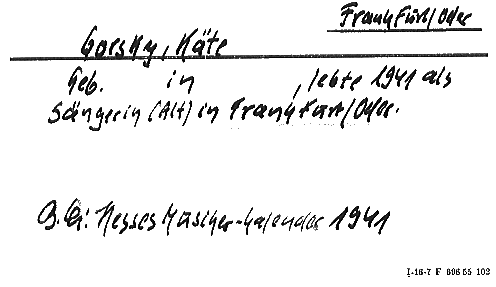 Frankfurt/Oder
Gorsky, Käte
Geb. in , lebte 1941 als
Sängerin (Alt) in Frankfurt/Oder.
Hesses Musiker-Kalender 1941
I-16-7 F 696 55 102